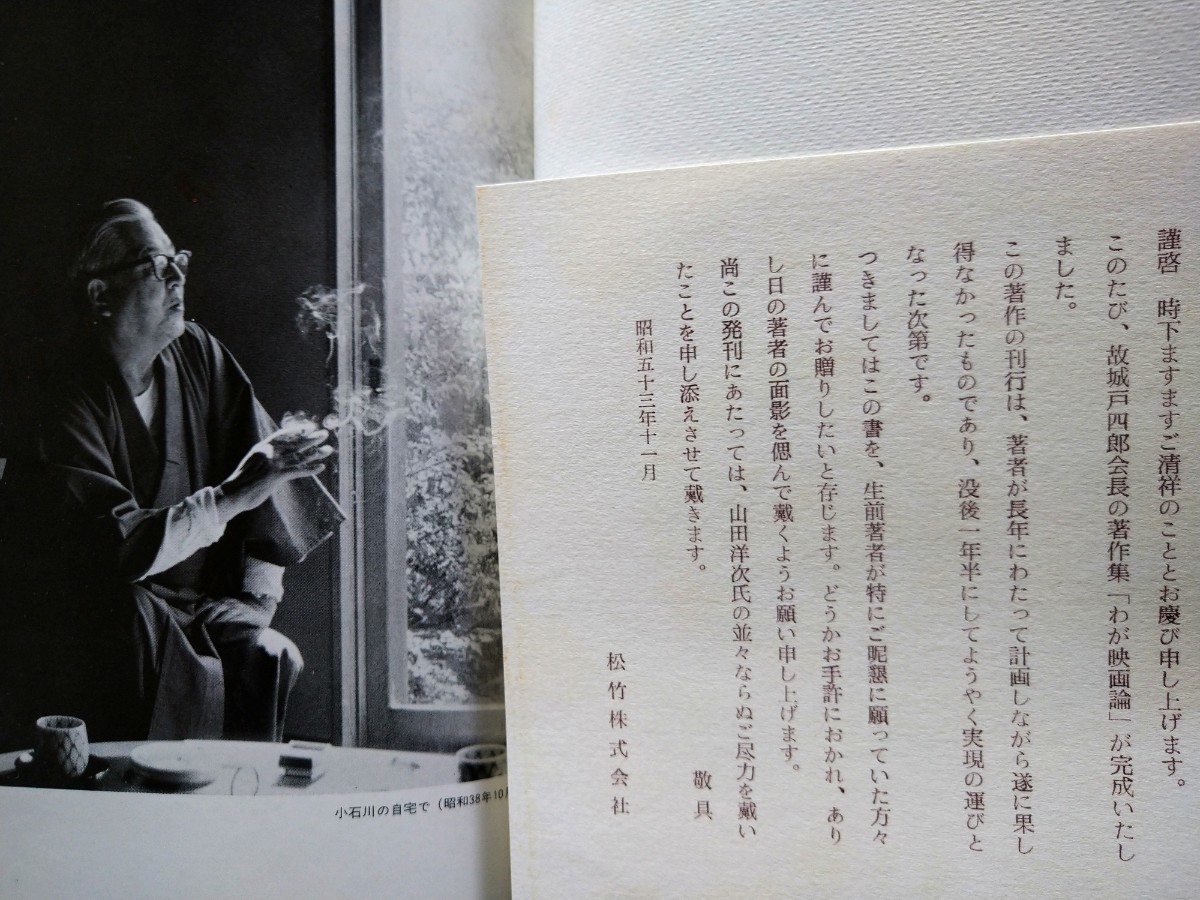 謹啓　時下ますますご清祥のこととお慶び申し上げます。
このたび、故城戸四郎会長の著作集「わが映画論」が完成いたし
ました。
この著作の刊行は、著者が長年にわたって計画しながら遂に果し
得なかったものであり、没後一年半にしてようやく実現の運びと
なった次第です。
つきましてはこの書を、生前著者が特にご昵懇に願っていた方々
に謹んでお贈りしたいと存じます。どうかお手許におかれ、あり
し日の著者の面影を偲んで戴くようお願い申し上げます。
尚この発刊にあたっては、山田洋次氏の並々ならぬご尽力を戴い
たことを申し添えさせて戴きます。
敬具
昭和五十三年十一月
松竹株式会社
小石川の自宅で（昭和38年10